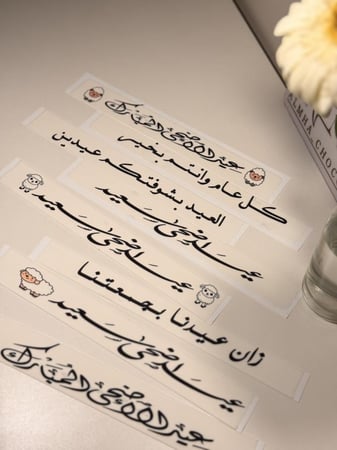 عيد الأضحى المبارك
كل عام وانتم بخير
العيد بشوفتكم عيدين
عيد أضحى سعيد
عيد أضحى سعيد
زان عيدنا بجمعتنا
عيد أضحى سعيد
عيد الأضحى المبارك
ALMHA CHOC